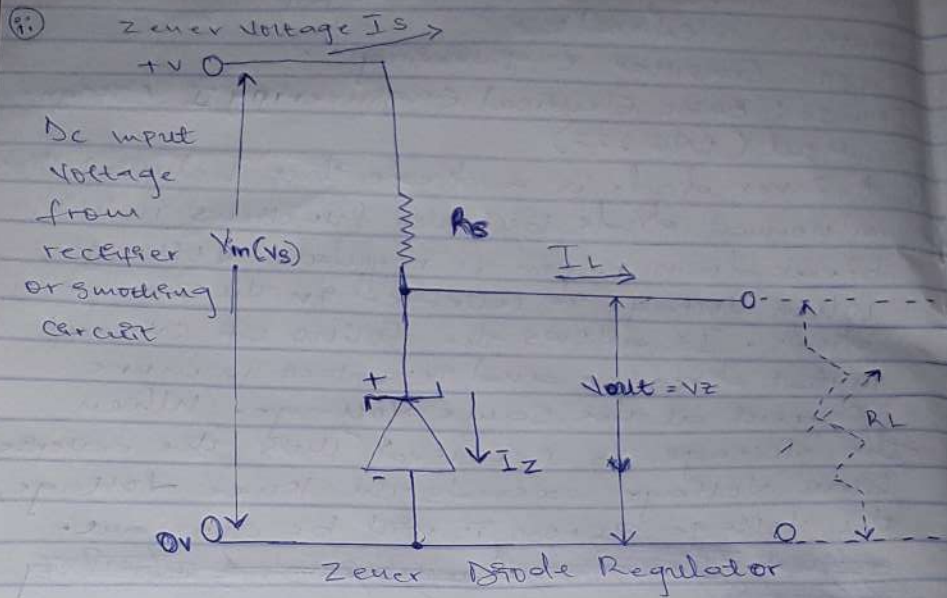 ii.
Zener Voltage Is
+V
Dc input
Voltage
from
rectifier
or smothing
circuit
Vin(Vs)
Rs
IL
+
Vout = Vz
RL
Iz
-
0v
Zener Diode Regulator